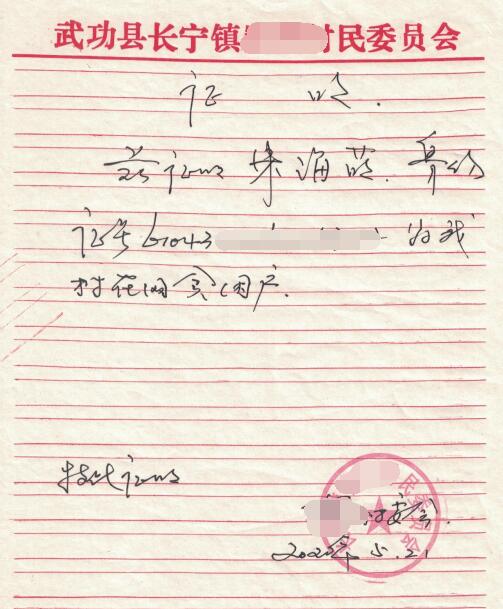 武功县长宁镇村民委员会
证 明.
兹证明 朱海 身份
证号61043 为我
村在网贫困户.
特此证明
民委员会
村委会.
5.21